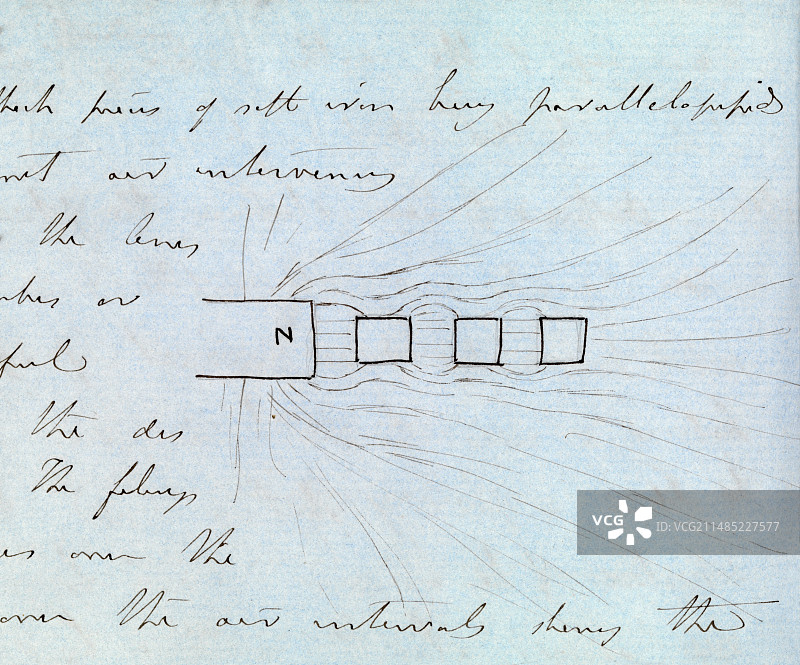 pieces of soft iron being parallelopipeds
air intervening
the lines
or
N
the dis
The filings
over the
over the air intervals shewing the
VCG ID: VCG211485227577